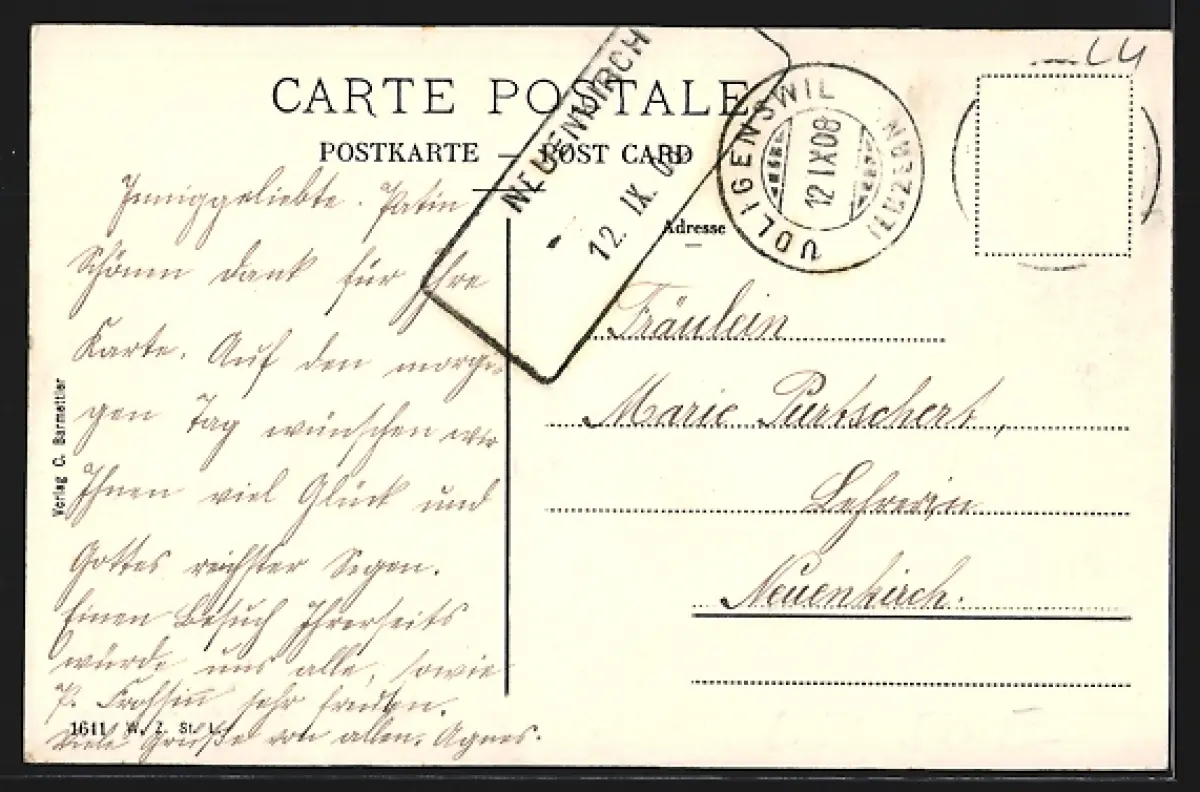 CARTE POSTALE
POSTKARTE — POST CARD
NEUENKIRCH
12. IX. 08
UDLIGENSWIL
(LUZERN)
12 IX 08
Adresse
Inniggeliebte. Patin
Schönen dank für Ihre
Karte. Auf den morgi-
gen Tag wünschen wir
Ihnen viel Glück und
Gottes reichster Segen.
Einen Besuch Ihrerseits
würde uns alle, sowie
P. Frohsinn sehr freuen.
Viele Grüße von allen. Agnes.
Fräulein
Marie Purtschert,
Lehrerin
Neuenkirch.
Verlag C. Barmettler
1611 W. Z. St. L.